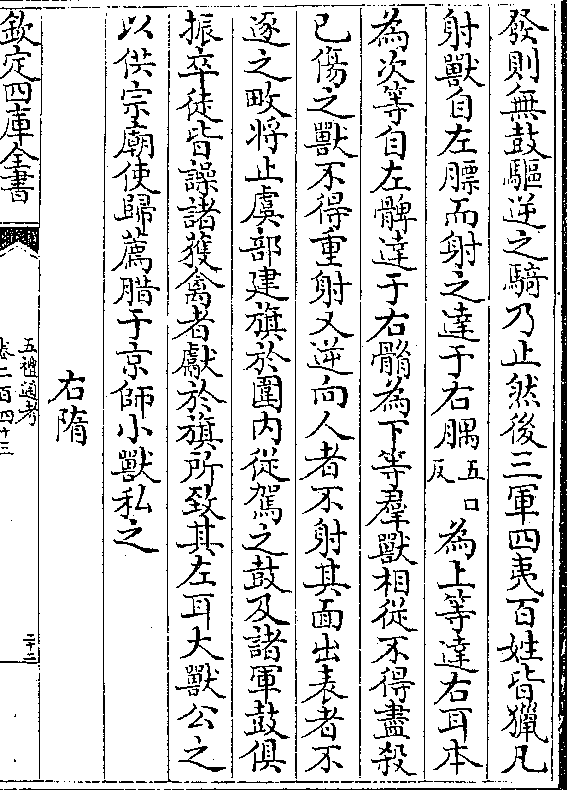 發則無鼓驅逆之騎乃止然後三軍四夷百姓皆獵凡
射獸自左膘而射之達于右腢五口反為上等達右耳本
為次等自左髀達于右䯚為下等羣獸相從不得盡殺
已傷之獸不得重射又逆向人者不射其面出表者不
逐之畋將止虞部建旗於圍内從駕之鼓及諸軍鼓俱
振卒徒皆譟諸獲禽者獻於旗所致其左耳大獸公之
以供宗廟使歸薦腊于京師小獸私之
右隋
欽定四庫全書
五禮通考
卷二百四十三
二十二